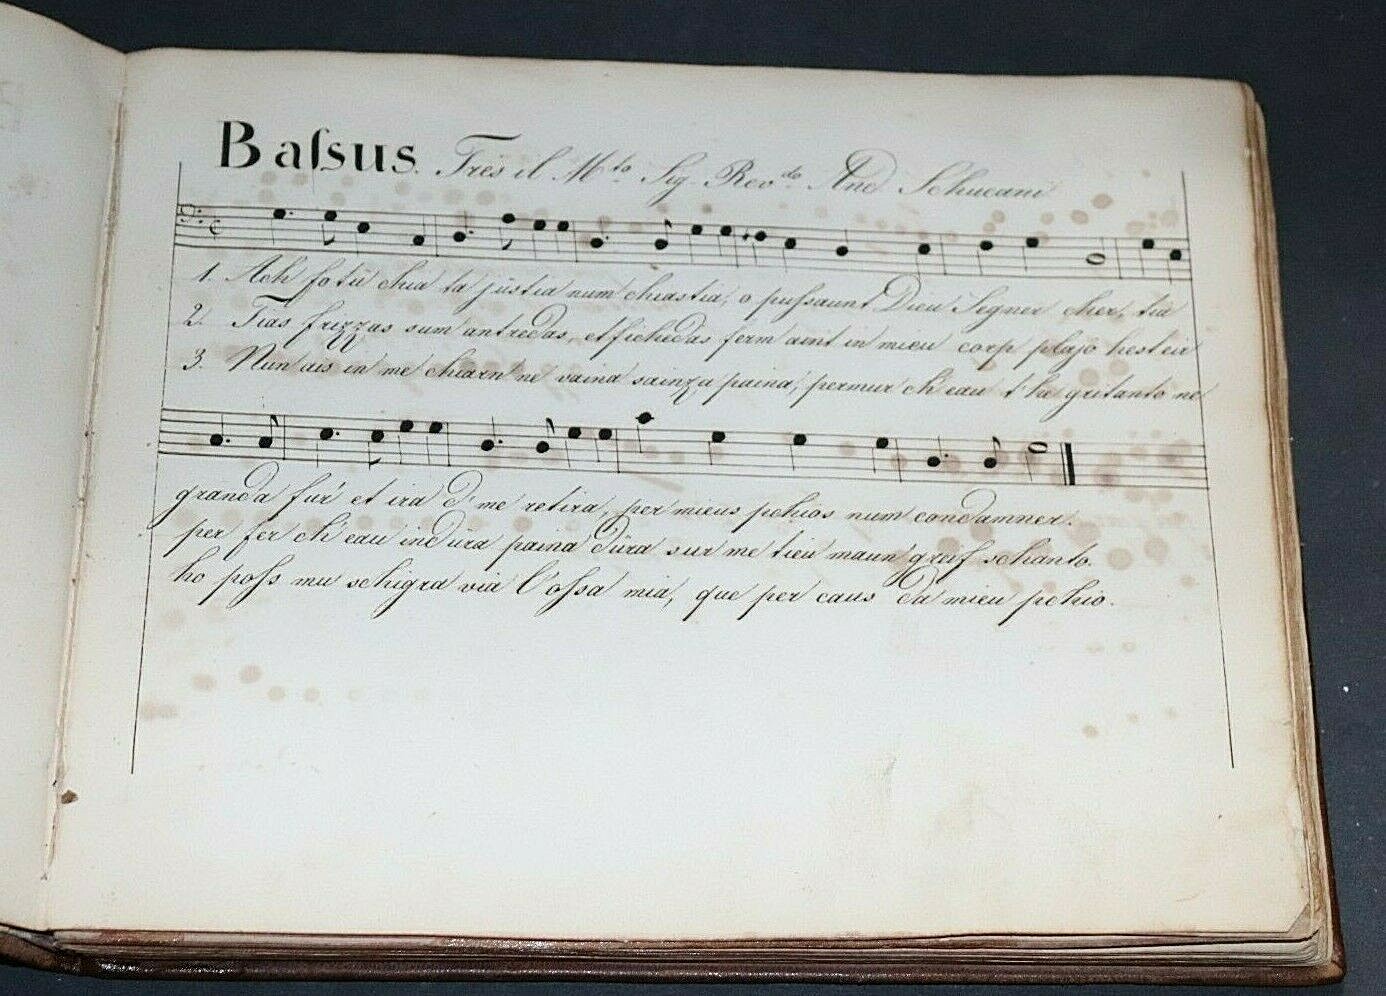 Baſsus. Três il Mto Sig. Revdo And Schucani
1. Ach fo tü chia ta jüstia num chiastia, o puſsaunt Dieu Segner cher, tia
2. Tias frizzas sum antredas, et fichedas ferm aint in mieu corp plajo hest eir
3. Nun ais in me chiarn ne vaina sainza paina, permur ch'eau t'he gritanto ne
granda fur' et ira d'me retira, per mieus pchios num condamner.
per fer ch'eau indüra paina düra sur me tieu maun greif schanto.
ho poſs mu schigra via l'oſsa mia, que per caus da mieu pchio.